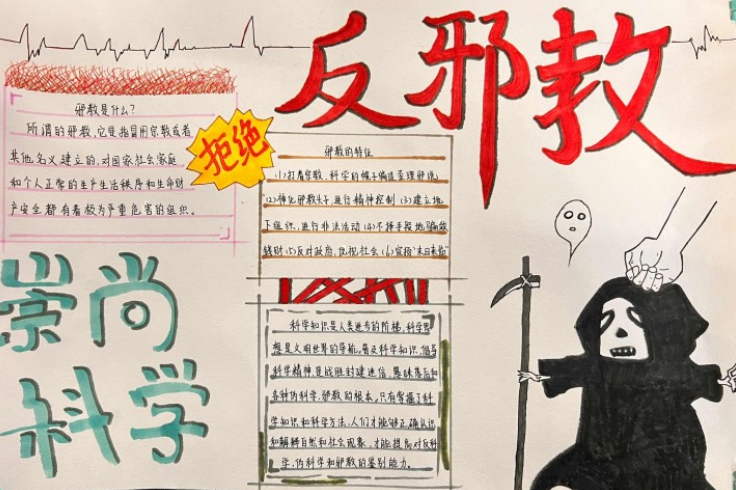 反邪教
邪教是什么？
所谓的邪教，它是指冒用宗教或者
其他名义建立的，对国家社会家庭
和个人正常的生产生活秩序和生命财
产安全都有着极为严重危害的组织。
拒绝
邪教的特征
(1)打着宗教、科学的幌子编造歪理邪说
(2)神化邪教头子，进行精神控制 (3)建立地
下组织，进行非法活动 (4)不择手段地骗敛
钱财 (5)反对政府，仇视社会 (6)宣扬“末日来临”
崇尚
科学
科学知识是人类进步的阶梯，科学思
想是文明世界的导航。普及科学知识，倡导
科学精神，是战胜封建迷信、愚昧落后和
各种伪科学、邪教的根本。只有掌握了科
学知识和科学方法，人们才能够正确认识
和解释自然和社会现象，才能提高对反科
学、伪科学和邪教的鉴别能力。